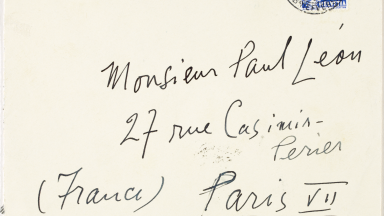 Monsieur Paul Léon
27 rue Casimir-
Perier
(France) Paris VII